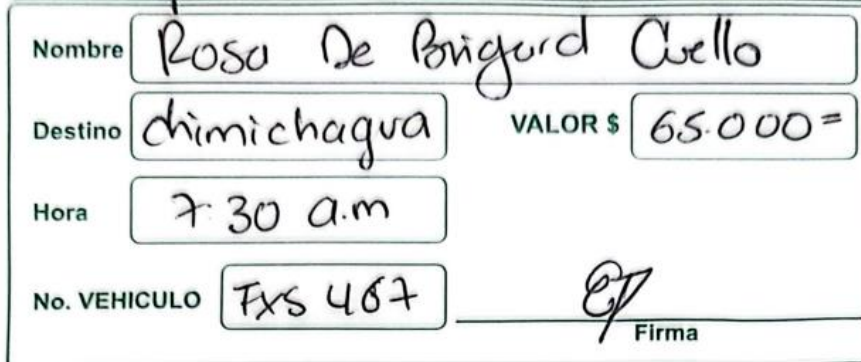 Nombre Rosa De Brigard Cuello
Destino chimichagua VALOR $ 65.000=
Hora 7:30 a.m
No. VEHICULO TXS 467
Firma